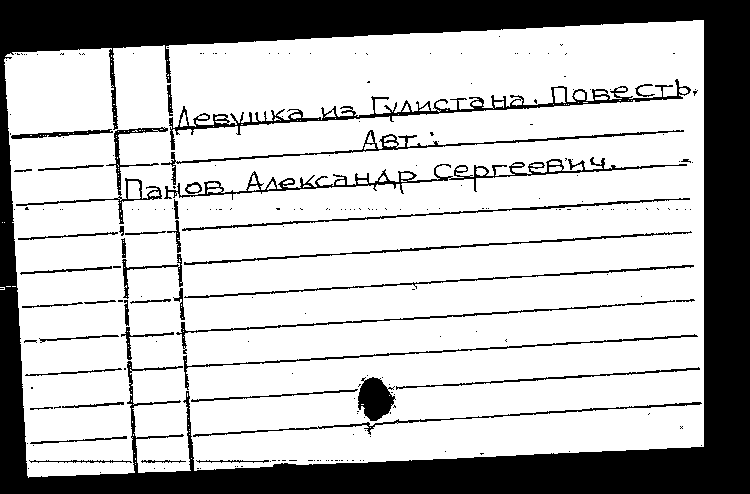 Девушка из Гулистана. Повесть.
Авт.:
Панов, Александр Сергеевич.